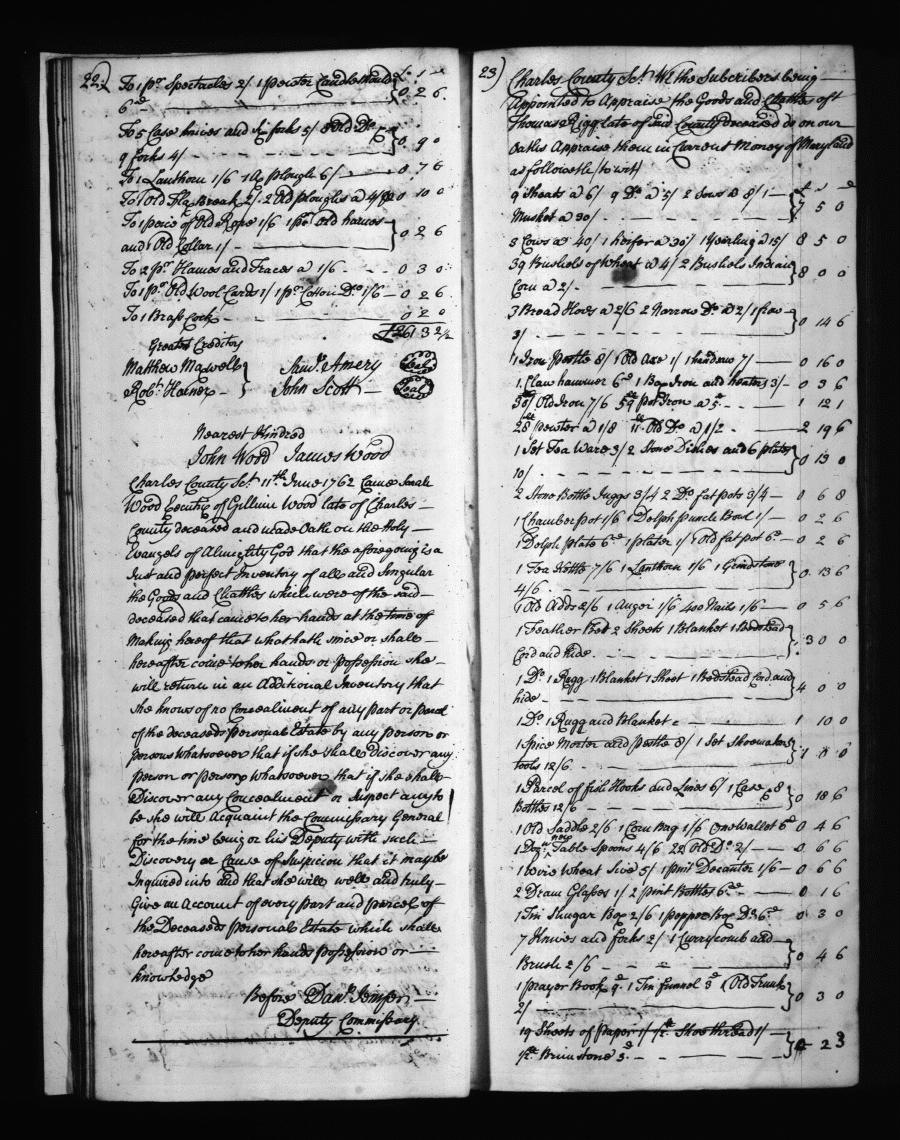 22)
To 1 pr. Spectacles 2/ 1 pewter Candlemould
6d — 0 2 6
To 5 Case knives and Six forks 5/ Old Do
9 forks 4/ — 0 9 0
To 1 Lanthorn 1/6 1 Ax plough 6/ — 0 7 6
To 1 Old Flax Break 2/ 2 Old ploughs a 4/ — 0 10 0
To 1 peice of Old Rope 1/6 1 pr. Old hames
and 1 Old Collar 1/ — 0 2 6
To 2 pr. Hames and Traces a 1/6 — 0 3 0
To 1 pr. Old Wool Cards 1/ 1 pr. Cotton Do 1/6 — 0 2 6
To 1 Brass Cock — 0 2 0
£ 261 3 2½
Greatest Creditors
Matthew Maxwell } Saml. Amery Seal
Robt. Horner } John Scott — Seal
Nearest Kindred
John Wood James Wood
Charles County Sct. 11th June 1762 Came Sarah
Wood Executrix of Wood late of Charles
County deceased and made Oath on the Holy
Evangels of Almighty God that the aforegoing is a
Just and perfect Inventory of all and Singular
the Goods and Chattles which were of the said
deceased that came to her hands at the time of
Making hereof that what hath since or shall
hereafter come to her hands or possession she
will return in an Additional Inventory that
she knows of no Concealment of any part or parcel
of the deceaseds personal Estate by any person or
persons Whatsoever that if she shall Discover any
person or persons whatsoever that if she shall
Discover any Concealment or Suspect any to
be she will Acquaint the Commissary General
for the time being or his Deputy with such
Discovery or Cause of Suspicion that it may be
Inquired into and that she will well and truly
Give an Account of every part and parcel of
the Deceaseds personal Estate which shall
hereafter come to her hands possession or
knowledge
Before Danl. Jenifer
Deputy Commissary
23)
Charles County Sct. We the Subscribers being
Appointed to Appraise the Goods and Chattles of
Thomas Rigg late of said County deceased do on our
Oaths Appraise them in Current Money of Maryland
as followeth towit
9 Sheats a 6/ 9 Do a 5/ 2 Sows a 8/ 1
Musket a 30/ — 7 5 0
3 Cows a 40/ 1 heifer a 30/ 1 Yearling a 15/ 8 5 0
39 Bushels of Wheat a 4/ 2 Bushels Indian
Corn a 2/ — 8 0 0
3 Broad Hoes a 2/6 2 Narrow Do a 2/ 1 frow
3/ — 0 14 6
1 Iron pestle 8/ 1 Old Axe 1/ 1 handmill 7/ — 0 16 0
1 Claw hammer 6d 1 Box Iron and heaters 3/ — 0 3 6
30 lb Old Iron 7/6 59 lb pot Iron a 5d — 1 12 1
28 lb pewter a 1/8 11 lb Old Do a 1/2 — 2 19 6
1 Set Tea Ware 3/ 2 Stone Dishes and 6 plates
10/ — 0 13 0
2 Stone Bottle Juggs 3/4 2 Do fat pots 3/4 — 0 6 8
1 Chamber pot 1/6 1 Dolph punch Bowl 1/ — 0 2 6
1 Dolph plate 6d 1 plater 1/ 1 Old fat pot 6d — 0 2 6
1 Tea Kettle 7/6 1 Lanthorn 1/6 1 Grindstone
4/6 — 0 13 6
1 Old Adds 2/6 1 Auger 1/6 400 Nails 1/6 — 0 5 6
1 Feather Bed 2 Sheets 1 Blanket 1 Bedstead
Cord and hide — 3 0 0
1 Do 1 Rugg 1 Blanket 1 Sheet 1 Bedstead Cord and
hide — 4 0 0
1 Do 1 Rugg and Blanket — 1 10 0
1 Spice Mortor and pestle 8/ 1 Set Shoemakers
tools 12/6 — 1 0
1 Parcel of fish Hooks and Lines 6/ 1 Case & 8
Bottles 12/6 — 0 18 6
1 Old Saddle 2/6 1 Corn Bag 1/6 One Wallet 6d 0 4 6
1 Dozn. new Table Spoons 4/6 22 Old Do 2/ — 0 6 6
1 Wire Wheat Sive 5/ 1 pint Decanter 1/6 — 0 6 6
2 Dram Glasses 1/ 2 pint Bottles 6d — 0 1 6
1 Tin Shugar Box 2/6 1 pepper Box Do 6d 0 3 0
7 Knives and Forks 2/ 1 Currycomb and
Brush 2/6 — 0 4 6
1 prayer Book 9d 1 Tin funnel 3d 1 Old Trunk
2/ — 0 3 0
19 Sheets of Paper 1/ ½ lb Shoethread 1/
½ lb Brimstone 3d — 0 2 3